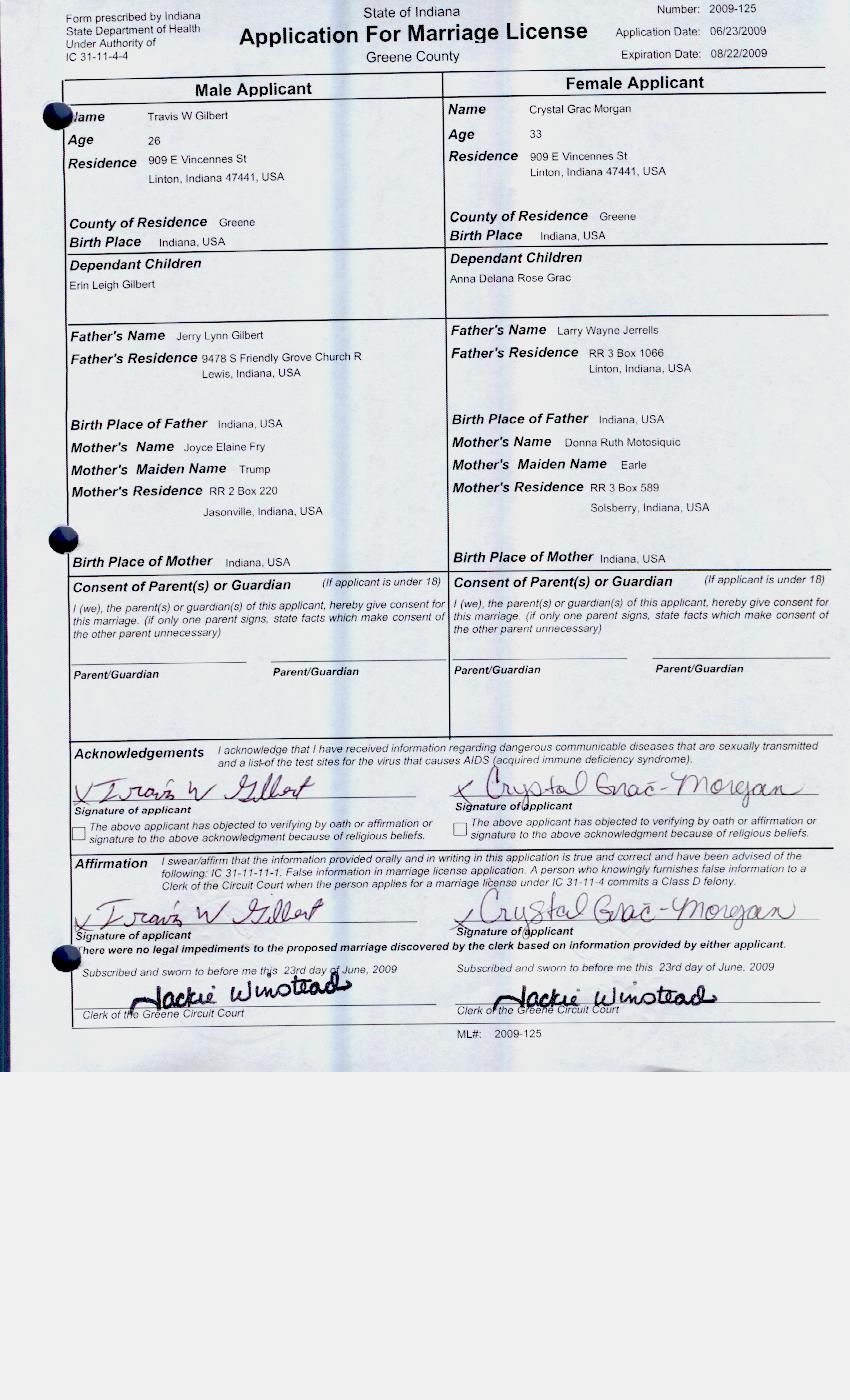 Form prescribed by Indiana
State Department of Health
Under Authority of
IC 31-11-4-4
State of Indiana
Application For Marriage License
Greene County
Number: 2009-125
Application Date: 06/23/2009
Expiration Date: 08/22/2009
Male Applicant
Name Travis W Gilbert
Age 26
Residence 909 E Vincennes St
Linton, Indiana 47441, USA
County of Residence Greene
Birth Place Indiana, USA
Dependant Children
Erin Leigh Gilbert
Father's Name Jerry Lynn Gilbert
Father's Residence 9478 S Friendly Grove Church R
Lewis, Indiana, USA
Birth Place of Father Indiana, USA
Mother's Name Joyce Elaine Fry
Mother's Maiden Name Trump
Mother's Residence RR 2 Box 220
Jasonville, Indiana, USA
Birth Place of Mother Indiana, USA
Consent of Parent(s) or Guardian (If applicant is under 18)
I (we), the parent(s) or guardian(s) of this applicant, hereby give consent for
this marriage. (if only one parent signs, state facts which make consent of
the other parent unnecessary)
Parent/Guardian Parent/Guardian
Female Applicant
Name Crystal Grac Morgan
Age 33
Residence 909 E Vincennes St
Linton, Indiana 47441, USA
County of Residence Greene
Birth Place Indiana, USA
Dependant Children
Anna Delana Rose Grac
Father's Name Larry Wayne Jerrells
Father's Residence RR 3 Box 1066
Linton, Indiana, USA
Birth Place of Father Indiana, USA
Mother's Name Donna Ruth Motosiquic
Mother's Maiden Name Earle
Mother's Residence RR 3 Box 589
Solsberry, Indiana, USA
Birth Place of Mother Indiana, USA
Consent of Parent(s) or Guardian (If applicant is under 18)
I (we), the parent(s) or guardian(s) of this applicant, hereby give consent for
this marriage. (if only one parent signs, state facts which make consent of
the other parent unnecessary)
Parent/Guardian Parent/Guardian
Acknowledgements I acknowledge that I have received information regarding dangerous communicable diseases that are sexually transmitted
and a list of the test sites for the virus that causes AIDS (acquired immune deficiency syndrome).
x Travis W Gilbert x Crystal Grac-Morgan
Signature of applicant Signature of applicant
The above applicant has objected to verifying by oath or affirmation or
signature to the above acknowledgment because of religious beliefs.
The above applicant has objected to verifying by oath or affirmation or
signature to the above acknowledgment because of religious beliefs.
Affirmation I swear/affirm that the information provided orally and in writing in this application is true and correct and have been advised of the
following: IC 31-11-11-1. False information in marriage license application. A person who knowingly furnishes false information to a
Clerk of the Circuit Court when the person applies for a marriage license under IC 31-11-4 commits a Class D felony.
x Travis W Gilbert x Crystal Grac-Morgan
Signature of applicant Signature of applicant
There were no legal impediments to the proposed marriage discovered by the clerk based on information provided by either applicant.
Subscribed and sworn to before me this 23rd day of June, 2009 Subscribed and sworn to before me this 23rd day of June, 2009
Jackie Winstead Jackie Winstead
Clerk of the Greene Circuit Court Clerk of the Greene Circuit Court
ML#: 2009-125